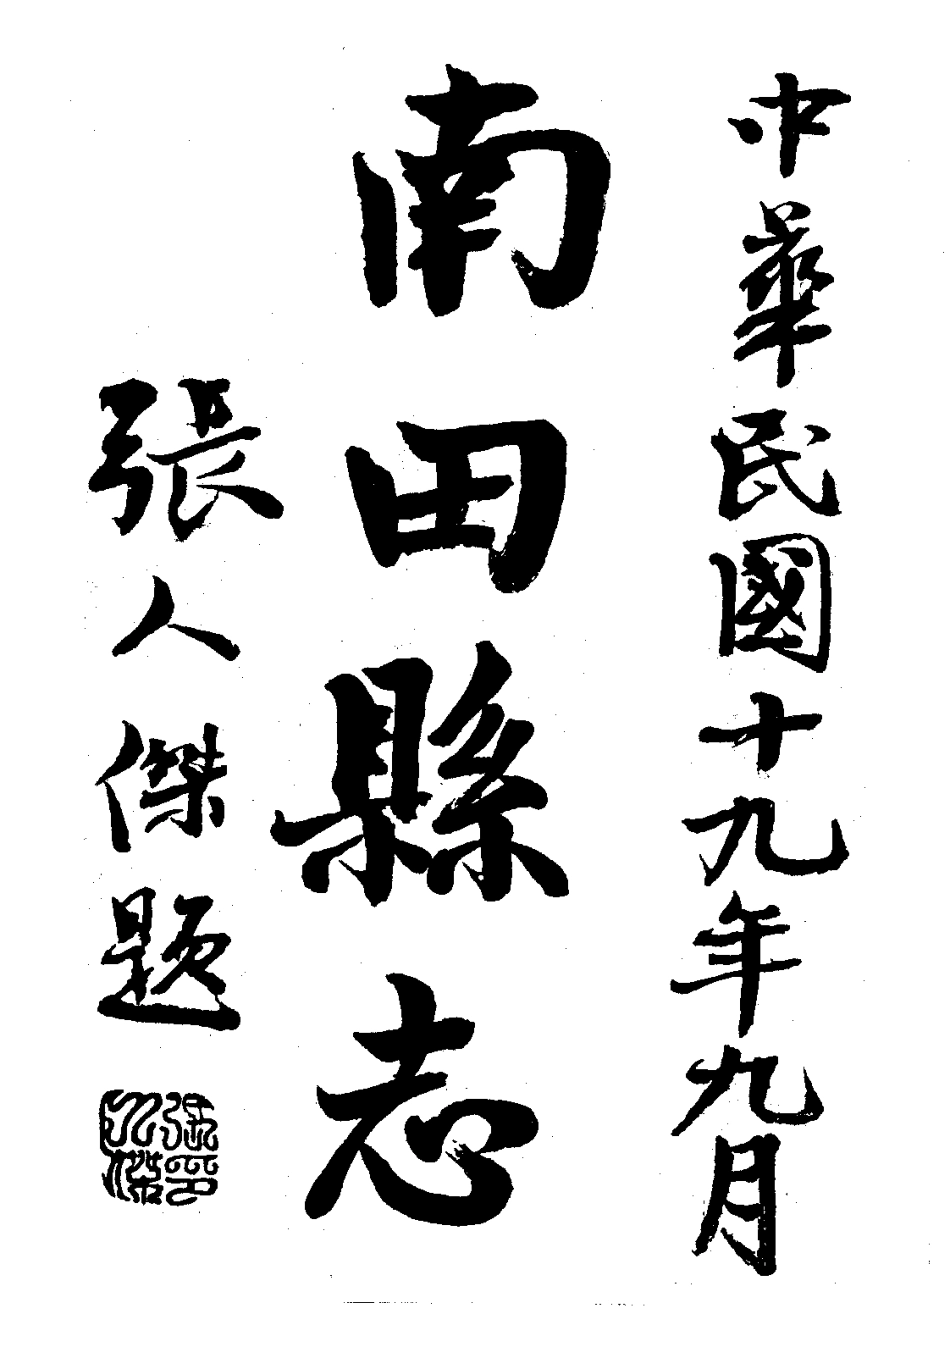 中華民國十九年九月
南田縣志
張人傑題
張人傑印